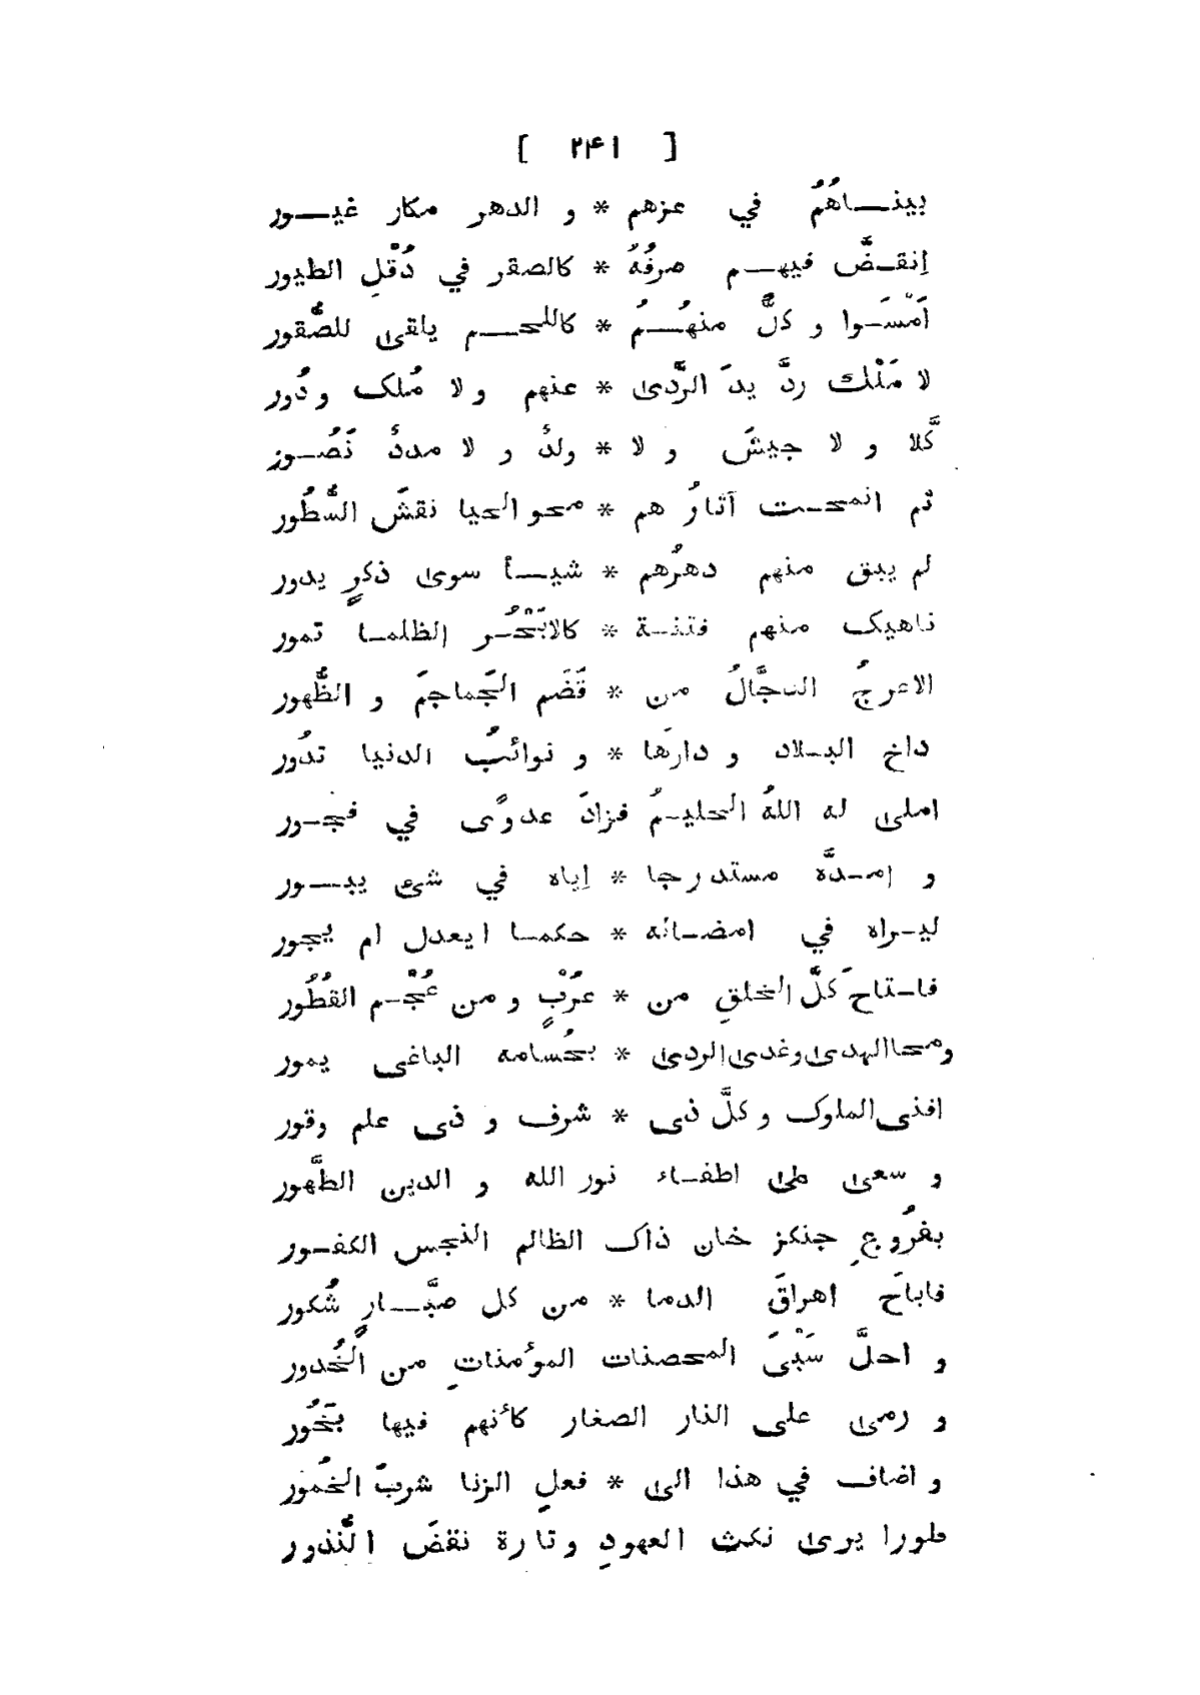 [ ۲۴۱ ]
بينـاهُمُ في عزهم * و الدهر مكار غيـور
اِنقـضَّ فيهـم صرفُهُ * كالصقر في دُقْلِ الطيور
اَمْسَـوا و كلٌّ منهُـمُ * كاللحـم يلقى للصُّقور
لا مَلْك ردَّ يدَ الرَّدى * عنهم و لا مُلك و دُور
كَّلا و لا جيشَ و لا * ولدٌ و لا مددٌ نَصُـور
ثم انمحـت آثارُ هم * محو الحيا نقشَ السُّطُور
لم يبق منهم دهرُهم * شيـأ سوى ذكرٍ يدور
ناهيك منهم فتنـة * كالابْحُـر الظلمـا تمور
الاعرجُ الدجَّالُ من * قَضَم الجَماجمَ و الظُّهور
داخ البـلاد و دارَها * و نوائبُ الدنيا تدُور
املى له اللهُ الحليـمُ فزادَ عدوًى في فجـور
و امـدَّه مستدرجا * اِياه في شئ يبـور
ليـراه في امضـائه * حكمـا ايعدل ام يجور
فاـتاحَ كلَّ الخلقِ من * عرُبْ و من عُجْـم القُطُور
ومحاالهدى وغدى الردى * بحُسامه الباغى يمور
افنى الملوك و كلَّ ذى * شرف و ذى علم وقور
و سعى على اطفـاء نور الله و الدين الطَّهور
بفرُوعِ جنكز خان ذاك الظالم النجس الكفـور
فاباحَ اهراقَ الدما * من كل صبَّـارٍ شُكور
و احلَّ سَبْىَ المحصنات المؤمناتِ من الخُدور
و رمى على النار الصغار كأنهم فيها بَخُور
و اضاف في هذا الى * فعلِ الزنا شربَ الخمُور
طورا يرى نكث العهودِ و تارة نقضَ النُّذور